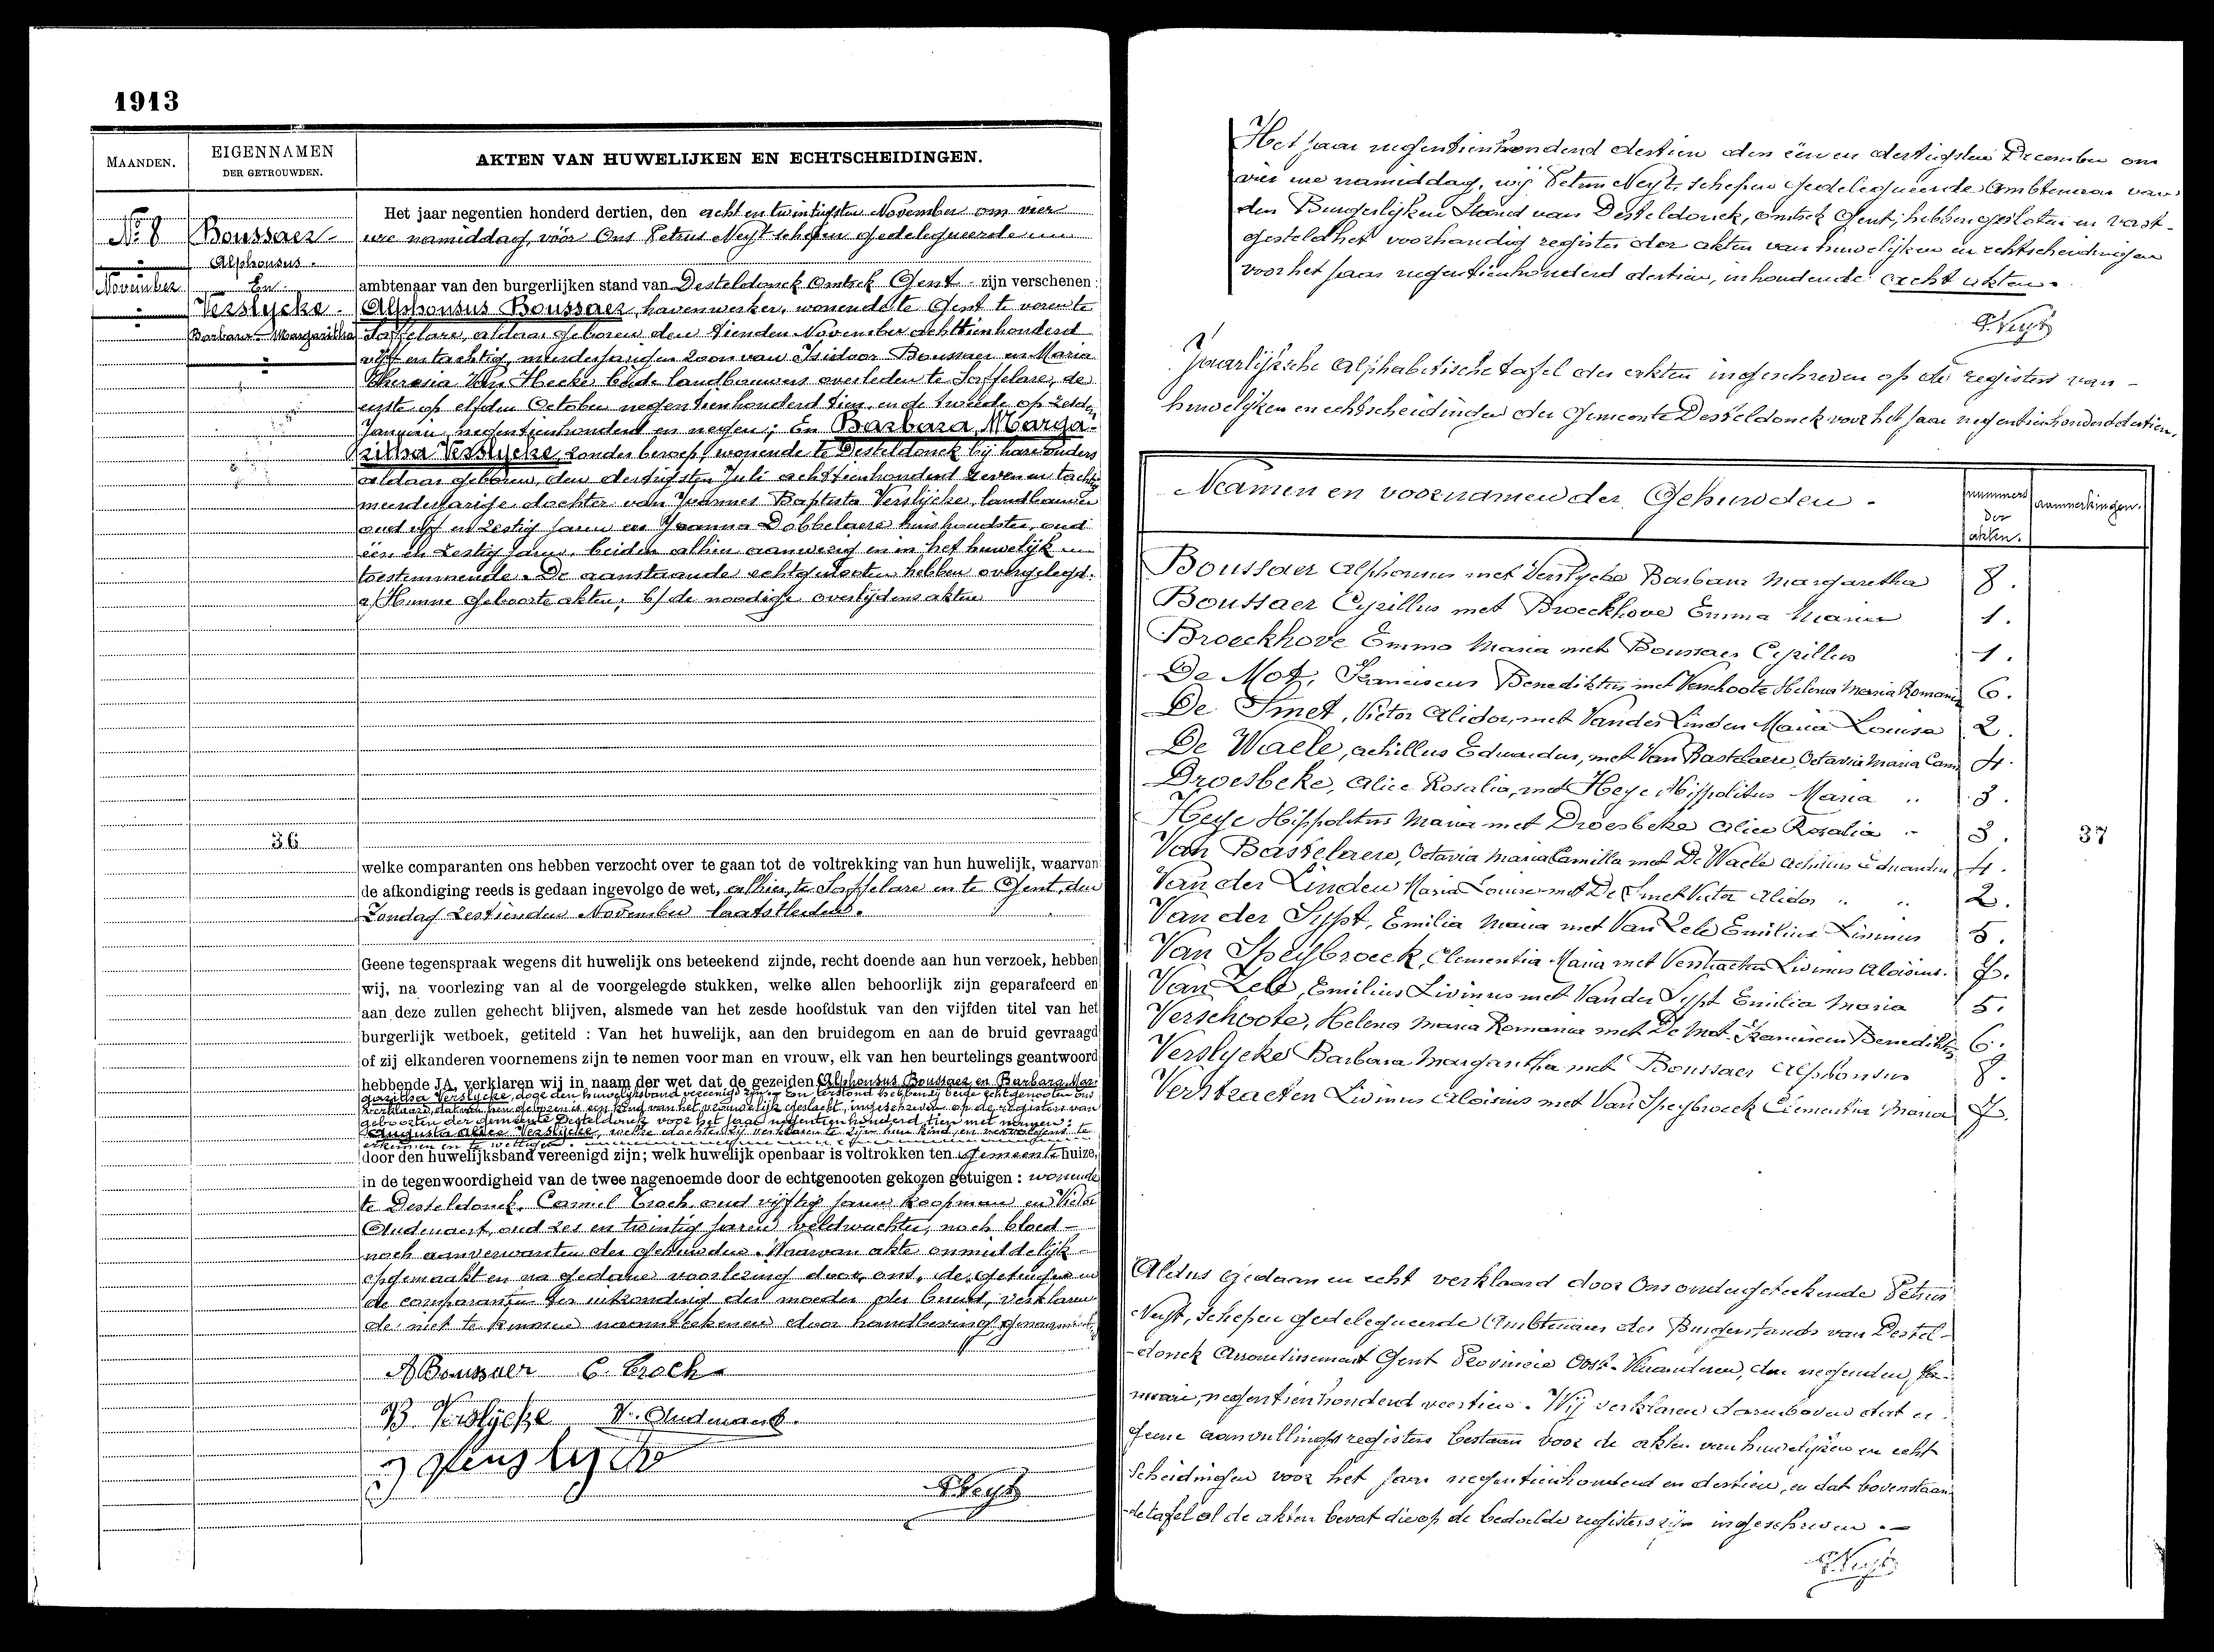 1913
MAANDEN.
EIGENNAMEN
DER GETROUWDEN.
AKTEN VAN HUWELIJKEN EN ECHTSCHEIDINGEN.
No 8
November
Boussaer
Alphonsus.
En
Verslycke.
Barbara Margaritha
Het jaar negentien honderd dertien, den acht en twintigsten November om vier
ure namiddag, vóór Ons Petrus Neyt schepen gedelegueerde
ambtenaar van den burgerlijken stand van Desteldonck Omtrek Gent zijn verschenen:
Alphonsus Boussaer, havenwerker, wonende te Gent te voren te
Saffelare, aldaar geboren den tienden November achttienhonderd
vijf en tachtig, meerderjarigen zoon van Isidoor Boussaer en Maria
Theresia Van Hecke beide landbouwers overleden te Saffelare, de
eerste op elfden October negentienhonderd tien, en de tweede op zesden
Januari negentienhonderd en negen; En Barbara, Marga-
ritha Verslycke, zonder beroep, wonende te Desteldonck bij hare ouders
aldaar geboren, den dertigsten Juli achttienhonderd zeven en tachtig
meerderjarige dochter van Joannes Baptista Verslycke, landbouwer
oud vijf en zestig jaren en Joanna Dobbelaere huishoudster, oud
één en zestig jaren, beiden alhier aanwezig en in het huwelijk
toestemmende. De aanstaande echtgenooten hebben overgelegd.
a/ Hunne geboorte akten; b/ de noodige overlijdens akten
36
welke comparanten ons hebben verzocht over te gaan tot de voltrekking van hun huwelijk, waarvan
de afkondiging reeds is gedaan ingevolge de wet, alhier, te Saffelare en te Gent, den
Zondag zestienden November laatstleden.
Geene tegenspraak wegens dit huwelijk ons beteekend zijnde, recht doende aan hun verzoek, hebben
wij, na voorlezing van al de voorgelegde stukken, welke allen behoorlijk zijn geparafeerd en
aan deze zullen gehecht blijven, alsmede van het zesde hoofdstuk van den vijfden titel van het
burgerlijk wetboek, getiteld : Van het huwelijk, aan den bruidegom en aan de bruid gevraagd
of zij elkanderen voornemens zijn te nemen voor man en vrouw, elk van hen beurtelings geantwoord
hebbende JA, verklaren wij in naam der wet dat de gezeiden Alphonsus Boussaer en Barbara Mar-
garitha Verslycke, door den huwelijksband vereenigd zijn. En terstond hebbende beide echtgenooten ons
verklaard, dat van hen geboren is een kind van het vrouwelijk geslacht, ingeschreven op de registers van
geboorten der gemeente Desteldonck voor het jaar negentienhonderd tien met namen:
Augusta Alice Verslycke, welke dochter zij verklaren te zijn hun kind en vervolgens te
erkennen en te wettigen.
door den huwelijksband vereenigd zijn; welk huwelijk openbaar is voltrokken ten Gemeentehuize,
in de tegenwoordigheid van de twee nagenoemde door de echtgenoten gekozen getuigen : wonende
te Desteldonck, Camiel Croch oud vijftig jaren koopman en Victor
Oudenaert, oud zes en twintig jaren veldwachter, noch bloed-
noch aanverwanten der gehuwden. Waarvan akte onmiddelijk
opgemaakt en na gedane voorlezing door ons, de getuigen en
de comparanten ter uitzondering der moeder der bruid, verklaren
de niet te kunnen naamteekenen door handbeving,
A Boussaer C. Croch
B Verslycke V. Oudenaert.
PNeyt
Het jaar negentienhonderd dertien den één en dertigsten December om
vier ure namiddag, wij Petrus Neyt, schepen gedelegueerde Ambtenaar van
den Burgerlijken Stand van Desteldonck, omtrek Gent, hebben gesloten en vast-
gesteld het voorhandig register der akten van huwelijken en echtscheidingen
voor het jaar negentienhonderd dertien, inhoudende acht akten.
PNeyt
Jaarlijksche Alphabetische tafel der akten ingeschreven op de registers van
huwelijken en echtscheidingen der Gemeente Desteldonck voor het jaar negentienhonderd dertien.
Namen en voornamen der Gehuwden.
nummers der akten.
aanmerkingen.
Boussaer Alphonsus met Verslycke Barbara Margaretha 8.
Boussaer Cyrillus met Broeckhove Emma Maria 1.
Broeckhove Emma Maria met Boussaer Cyrillus 1.
De Mot, Franciscus Benediktus met Verschoote Helena Maria Romania 6.
De Smet, Victor Alidor, met Vander Linden Maria Louisa 2.
De Waele, Achillus Eduardus, met Van Bastelaere, Octavia Maria Cam 4.
Droesbeke, Alice Rosalia, met Heye Hippolitus Maria " 3.
Heye Hippolitus Maria met Droesbeke Alice Rosalia " 3.
37
Van Bastelaere, Octavia Maria Camilla met De Waele Achillus Eduardus 4.
Van der Linden Maria Louisa met De Smet Victor Alidor " " 2.
Van der Sypt, Emilia Maria met Van Zele Emilius Livinus 5.
Van Speybroeck, Clementia Maria met Verstraeten Livinus Aloisius. 7.
Van Zele, Emilius Livinus met Van der Sypt Emilia Maria 5.
Verschoote, Helena Maria Romania met De Mot Franciscus Benediktus 6.
Verslycke Barbara Margaritha met Boussaer Alphonsus 8.
Verstraeten Livinus Aloisius met Van Speybroeck Clementia Maria 7.
Aldus gedaan en echt verklaard door Ons ondergeteekende Petrus
Neyt, Schepen gedelegueerde Ambtenaar des Burgerstands van Destel-
-donck Arrondissement Gent Provincie Oost-Vlaanderen, den negenden Ja-
nuari, negentienhonderd veertien. Wij verklaren daarenboven dat er
geene aanvullingsregisters bestaan voor de akten van huwelijken en echt
scheidingen voor het jaar negentienhonderd en dertien, en dat bovenstaan-
de tafel al de akten bevat die op de bedoelde registers zijn ingeschreven.
PNeyt